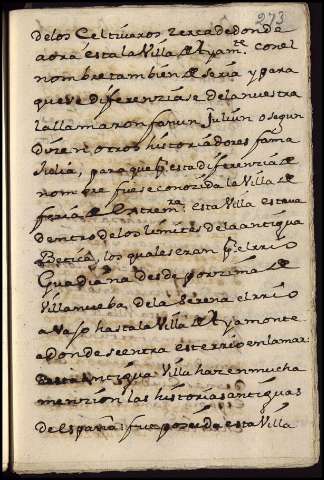 273
de los Celtiveros zerca de donde
aora esta la Villa de Ayam.te con el
nombre tambien de Seria y para
que se diferenziase de la nuestra
la llamaron fanun Juliun o segun
dizen otros historiadores fama
Iulia, para que p.r esta diferenzia de
nombre fuese conozida la Villa de
feria de Extrem.ra esta Villa estava
dentro de los limites de la antigua
Betica, los quales eran p.r el rrio
Guadiana desde por zima de
Villanueba de la Serena el rrio
a vajo hasta la Villa de Ayamonte
a donde se entra este rrio en la mar:
Desta Antigua Villa hazen mucha
menzion las historias antiguas
de España: fue poseida esta Villa